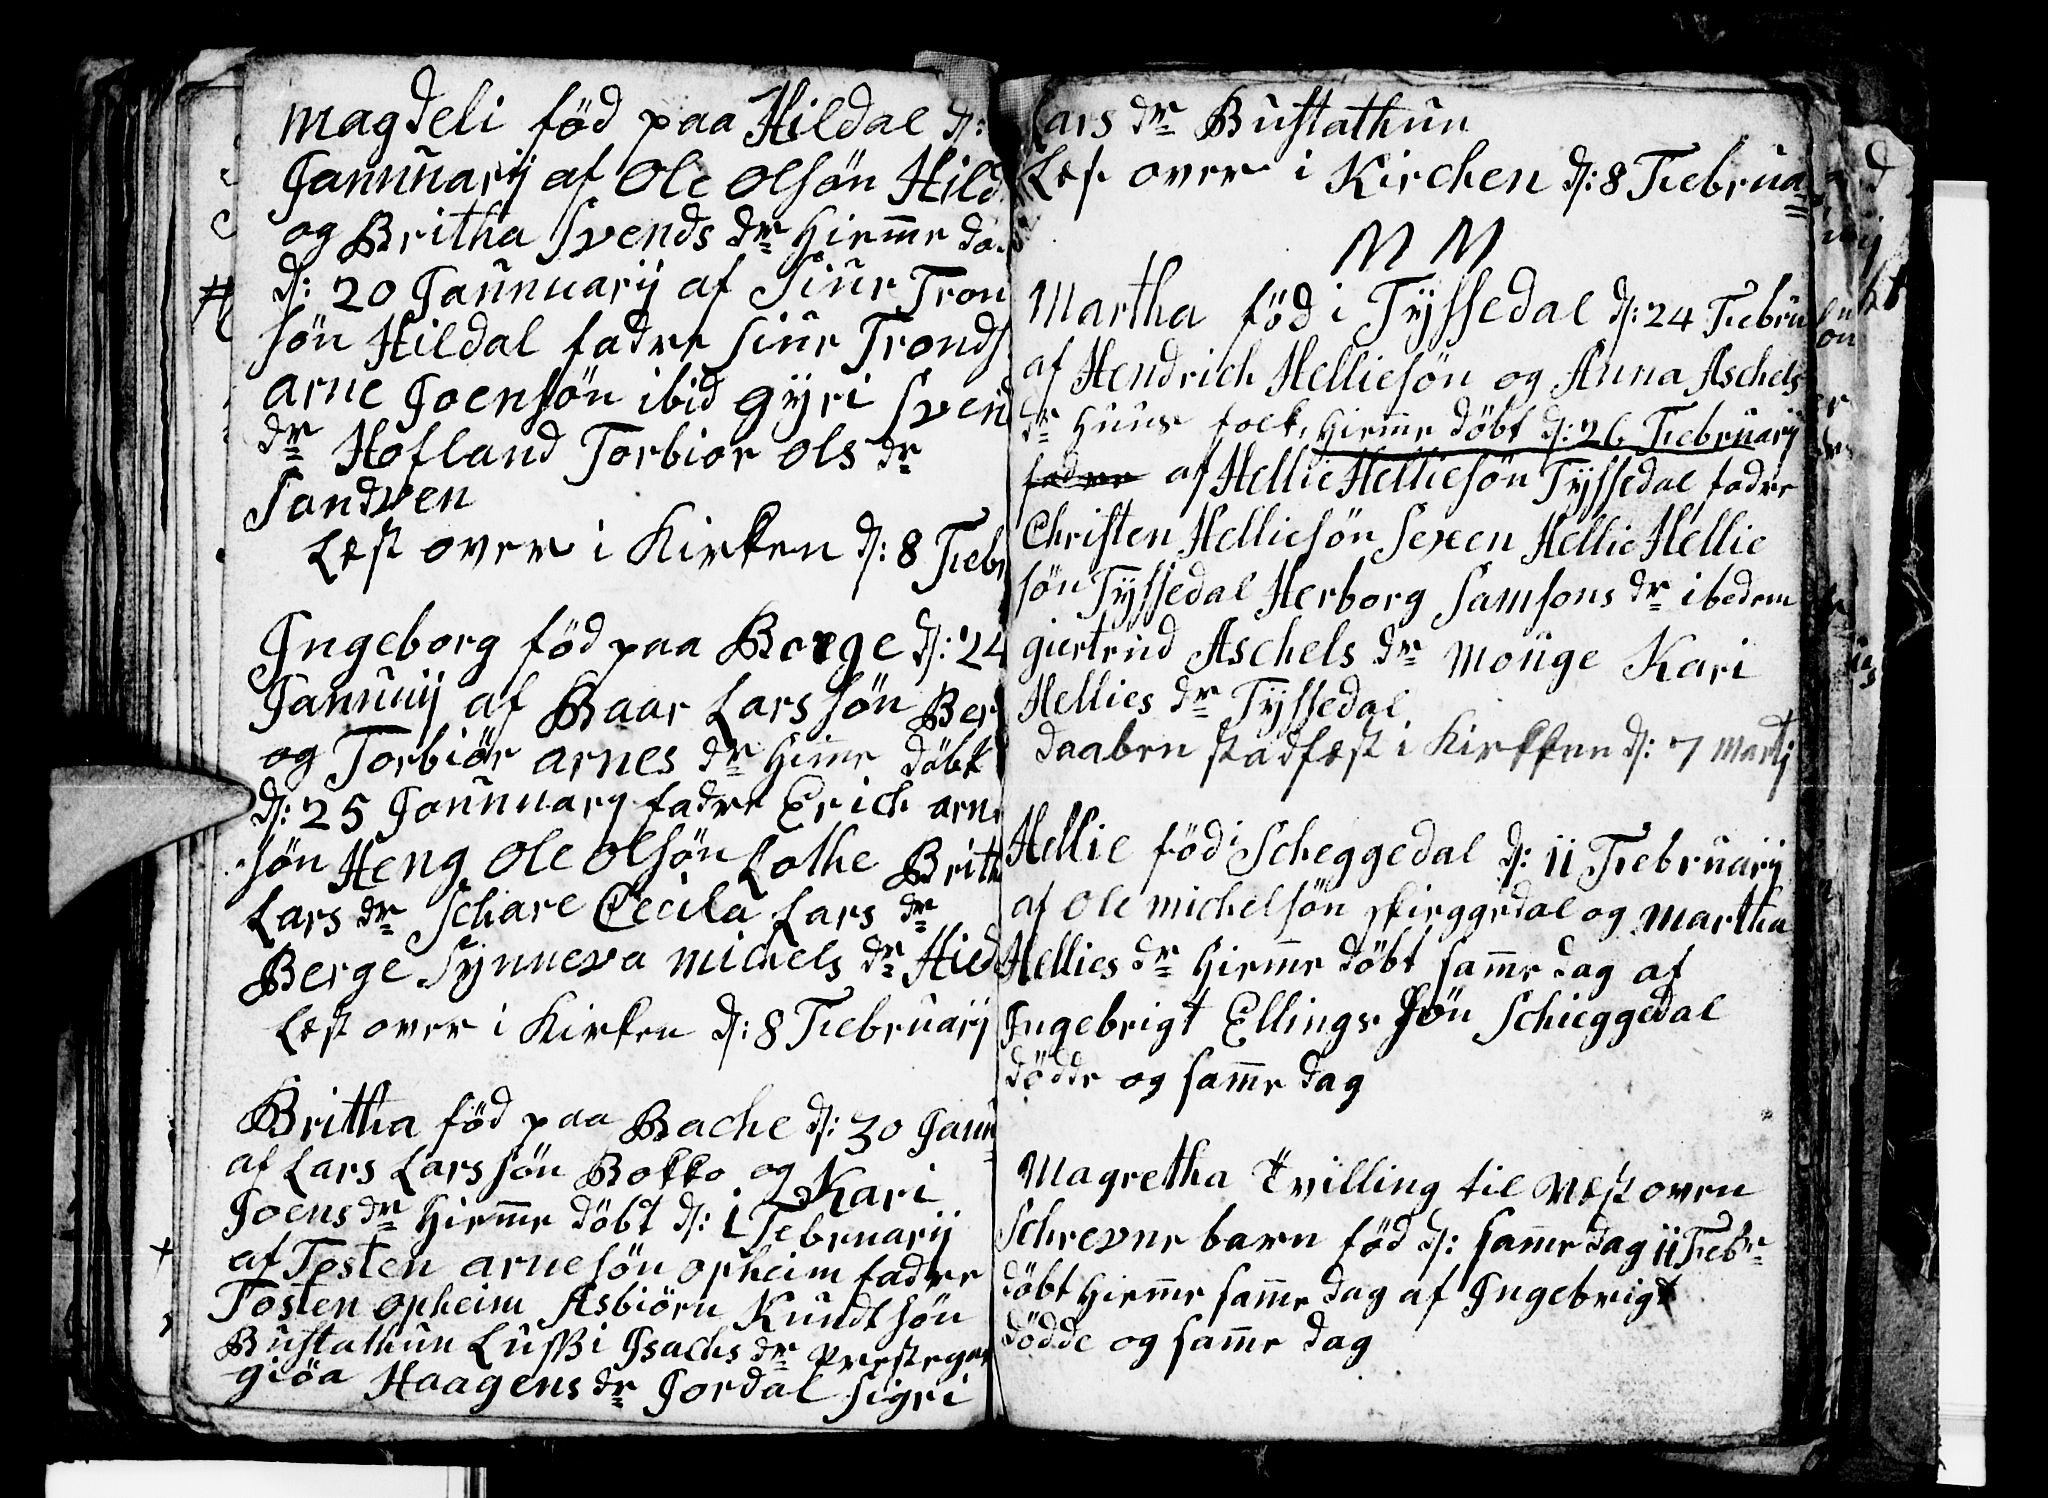 Magdeli fød paa Hildal d:
Januuarij af Ole Olsøn Hild
og Britha Svends dr Hiemme dø
d: 20 Januuarij af Siur Tron
søn Hildal fadre Siur Tronds
Arne Joensøn ibid gÿri Sven
dr Hofland Torbior Ols dr
Sandven
Lest over i Kirken d: 8 Febr
Ingeborg fød paa Berge d: 24
Januuij af Baar Larssøn Ber
og Torbiør Arnes dr Hieme døbt
d: 25 Januuarij fadre Erich Arne
søn Heng Ole Olsøn Lothe Brith
Lars dr Schare Cecila Lars dr
Berge Synneva Michels dr Hied
Lest over i Kirken d: 8 Februarij
Britha fød paa Bache d: 30 Janu
af Lars Larssøn Bokko og Kari
Joens dr Hiemme døbt d: 1 Februarij
af Tosten Arnesøn Opheim fadre
Tosten Opheim Asbiørn Kundtsøn
Bustathun Lussi Isachs dr Prestega
giøa Haagens dr Jordal Sigri
Lars dr Bustathun
Lest over i Kirchen d: 8 Februa
M M
Martha fød i Tyssedal d: 24 Febru
af Hendrich Helliesøn og Anna Aschels
dr Huus folk, Hiemme døbt d: 26 Februarij
fadre af Hellie Helliesøn Tyssedal fadre
Christen Helliesøn Sexeen Hellie Hellie
søn Tyssedal Herborg Samsons dr ibedem
giertrud Aschels dr Mouge Kari
Hellies dr Tyssedal
daaben stadfest i Kirkken d: 7 Martij
Hellie fød i Scheggedal d: 11 Februarij
af Ole Michelsøn Skieggedal og Martha
Hellies dr Hiemme døbt samme dag af
Ingebrigt Ellings Søn Schieggedal
dødde og samme dag
Magretha Tvilling til Nest oven
Schrevne barn fød d: samme dag 11 Febr
døbt Hiemme samme dag af Ingebrigt
dødde og samme dag